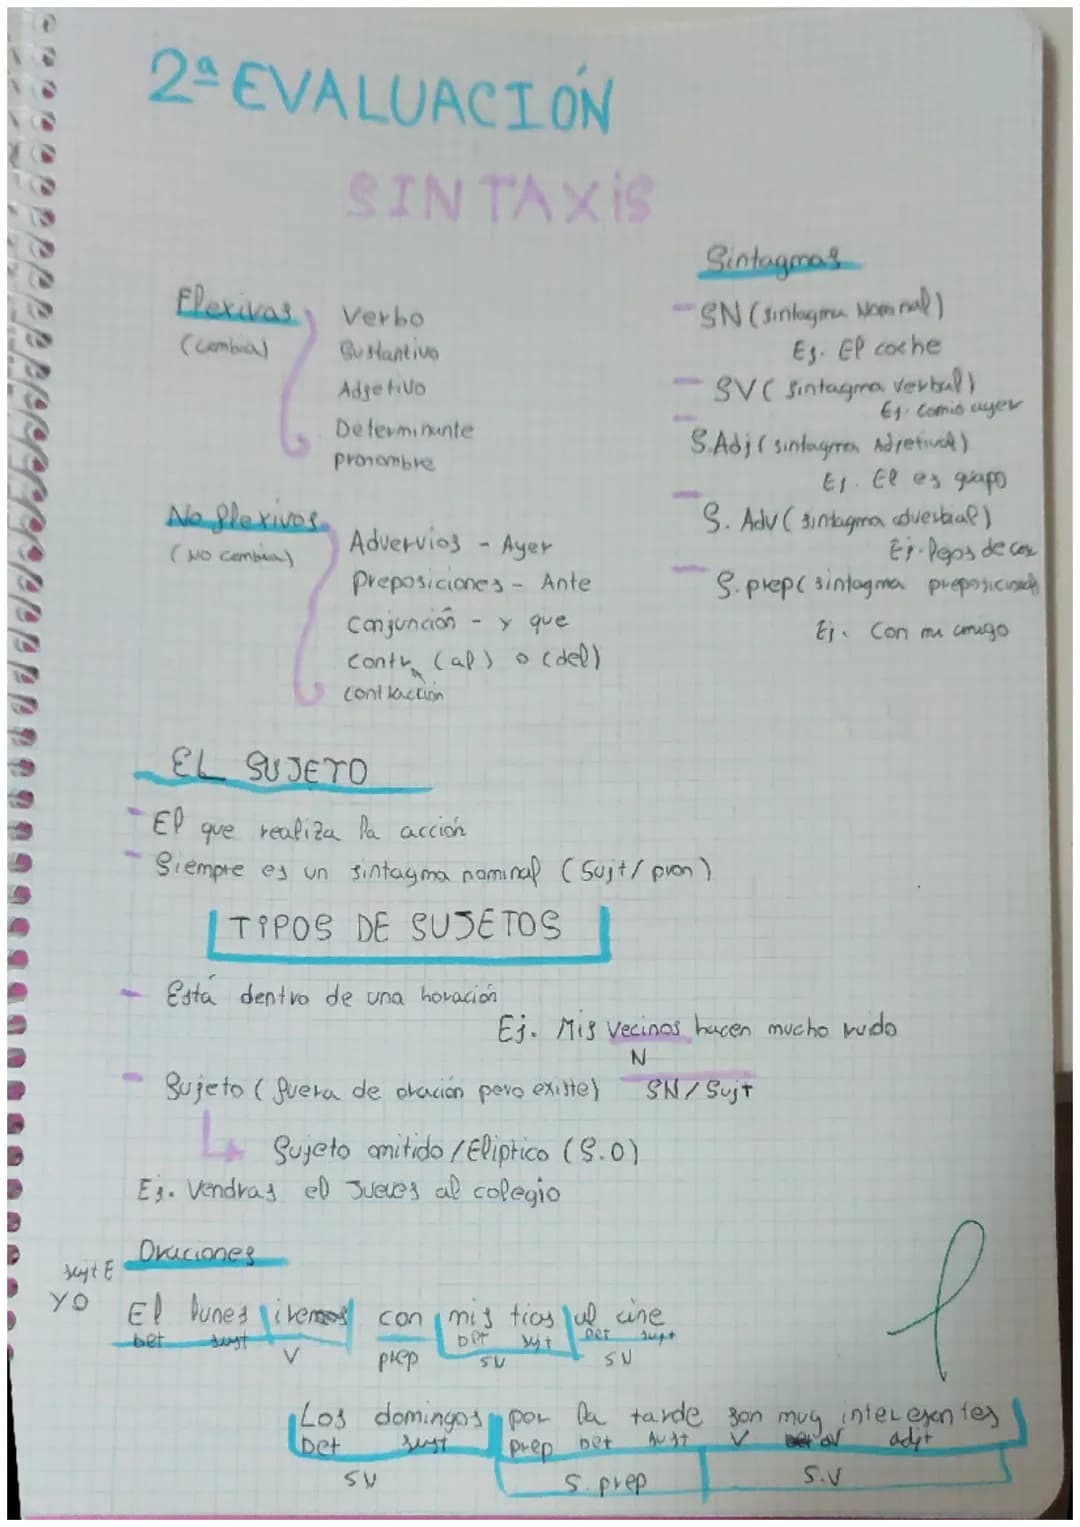 2ª EVALUACIÓN
SINTAXIS
Flexivas
(cambia)
Verbo
Sustantivo
Adjetivo
Determinante
pronombre
No flexivos
(NO cambia)
Advervios - Ayer
Preposiciones - Ante
Conjunción - y que
Contr (al) o (del)
contracción
Sintagmas
- SN (sintagma Nominal)
Ej. El coche
- SV (sintagma verbal)
Ej. Comió ayer
- S.Adj (sintagma Adjetival)
Ej. El es guapo
- S. Adv (sintagma adverbial)
Ej. lejos de
- S. prep (sintagma
Ej. Con mi amigo
EL SUJETO
- El que realiza la acción
- Siempre es un sintagma nominal (Sujt/pron)
TIPOS DE SUJETOS
- Está dentro de una horación
Ej. Mis vecinos hacen mucho ruido
N
SN/Sujt
- Sujeto (fuera de oración pero existe)
Sujeto omitido/Eliptico (S.O)
Ej. Vendras el Jueves al colegio
Oraciones
sujt E
YO
El lunes iremos con mis tios al cine
Det sust V prep Det sujt Det sust
SN SN
Los domingos por la tarde son muy interesantes
Det sust prep Det sust V adjt
SN S. prep S.V